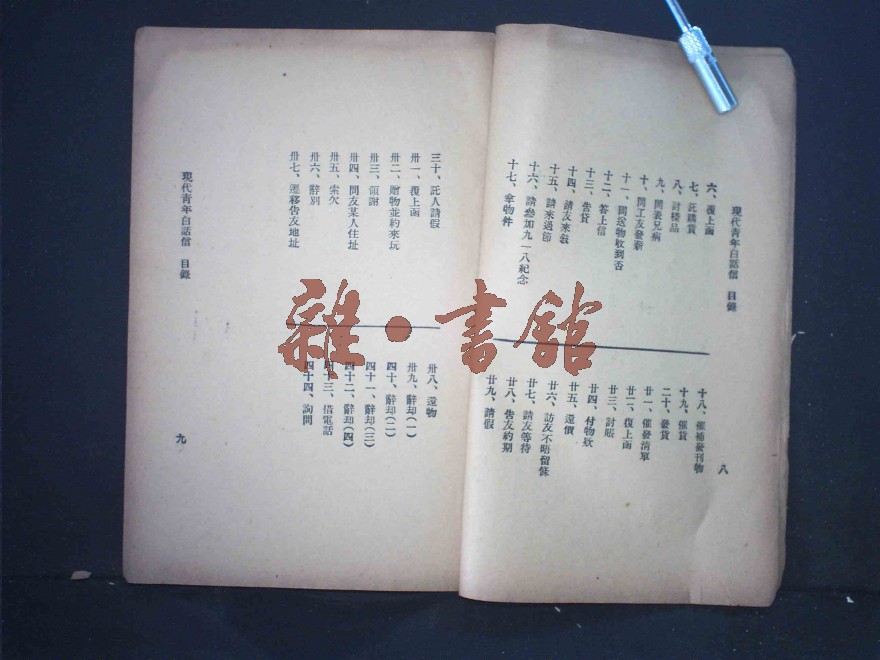 現代青年白話信 目錄
六、覆上函
七、託購貨
八、討樣品
九、問表兄病
十、問工友發薪
十一、問送物收到否
十二、答上信
十三、告貸
十四、請友來敍
十五、請來過節
十六、請參加九一八紀念
十七、拿物件
十八、催補發刊物
十九、催貨
二十、發貨
廿一、催發清單
廿二、復上函
廿三、討賬
廿四、付物欵
廿五、還價
廿六、訪友不晤留條
廿七、請友等待
廿八、告友約期
廿九、請假
八
三十、託人請假
卅一、覆上函
卅二、贈物並約來玩
卅三、領謝
卅四、問友某人住址
卅五、索欠
卅六、辭別
卅七、遷移告友地址
卅八、還物
卅九、辭却(一)
四十、辭却(二)
四十一、辭却(三)
四十二、辭却(四)
四十三、借電話
四十四、詢問
現代青年白話信 目錄
九
雜·書館